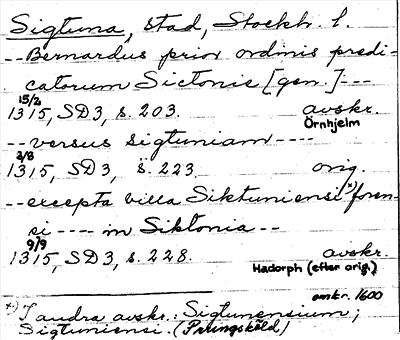 Sigtuna, stad, Stockh. l.
-- Bernardus prior ordinis predi-
catorum Sictonis [gen.] ---
15/2
1315, SD3, s. 203. avskr.
Örnhjelm
-- versus sigtuniam ----
2/8
1315, SD3, s. 223. orig.
-- excepta villa Siktuniensi *) foren-
si ---- in Siktonia --
9/9
1315, SD3, s. 228. avskr.
Hadorph (efter orig.)
omkr. 1600
*) I andra avskr.: Sigtunensium;
Sigtuniensi. (Pringsköld)